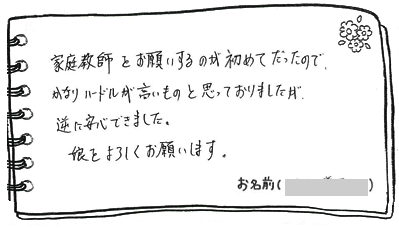 家庭教師をお願いするのが初めてだったので、
かなりハードルが高いものと思っておりましたが、
逆に安心できました。
娘をよろしくお願いします。
お名前( )